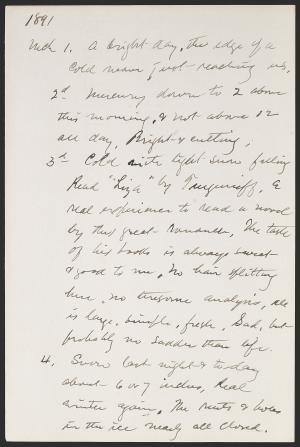 1891
Mch 1. A bright day, the edge of a
cold wave just reaching us.
2d Mercury down to 2 above
this morning, & not above 12
all day, Bright & cutting.
3d Cold with light snow falling
Read "Liza" by Turgenieff, a
real experience to read a novel
by this great romancer. The taste
of his books is always sweet
& good to me, no hair splitting
here, no tiresome analysis, all
is large, simple, fresh. Sad, but
probably no sadder than life.
4. Snow last night & to day
about 6 or 7 inches, Real
winter again. The rents & holes
in the ice nearly all closed.